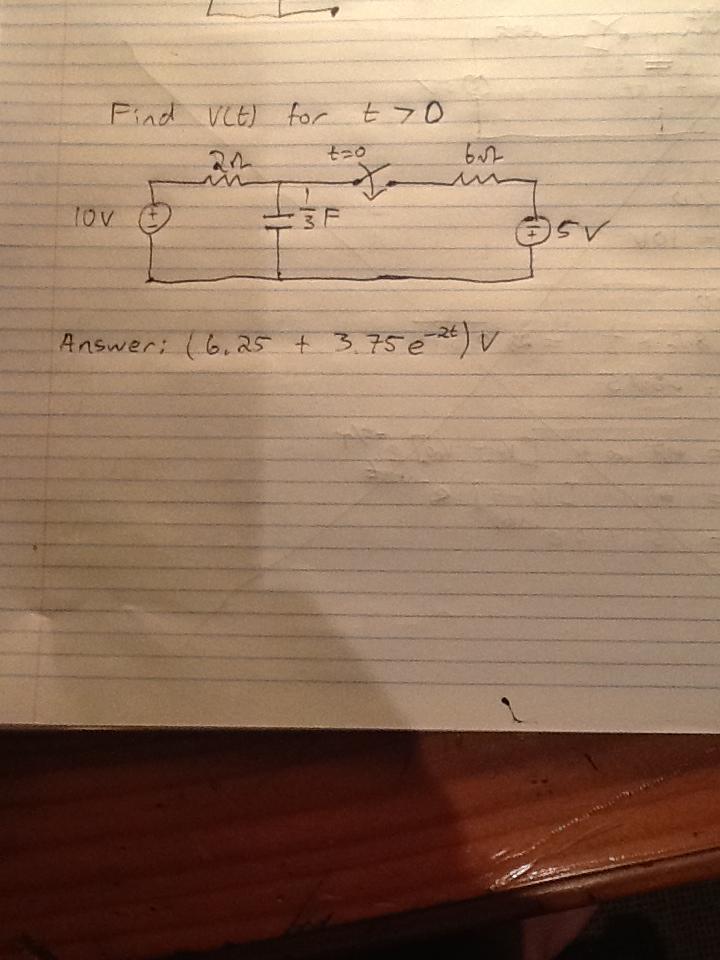 Find v(t) for t > 0
2Ω t=0 6Ω
10V 1/3 F 5V
Answer: (6.25 + 3.75e^-2t) V